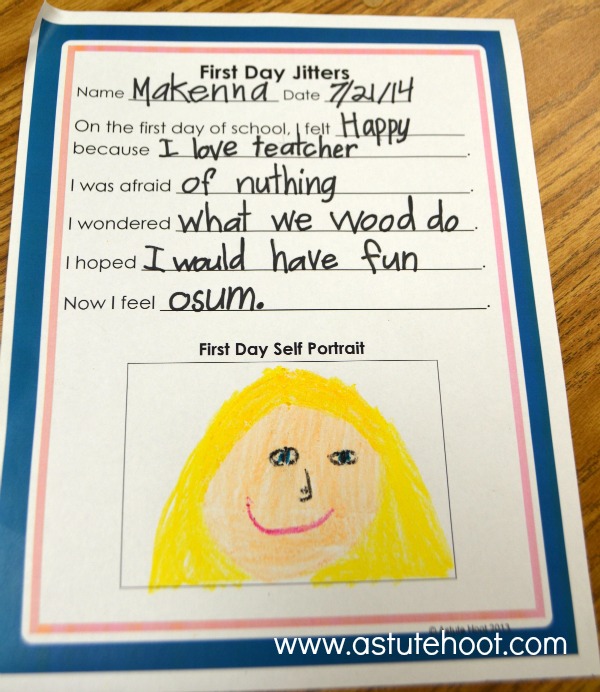 First Day Jitters
Name Makenna Date 7/21/14
On the first day of school, I felt Happy
because I love teatcher.
I was afraid of nuthing.
I wondered what we wood do.
I hoped I would have fun.
Now I feel osum..
First Day Self Portrait
© Astute Hoot 2013
www.astutehoot.com